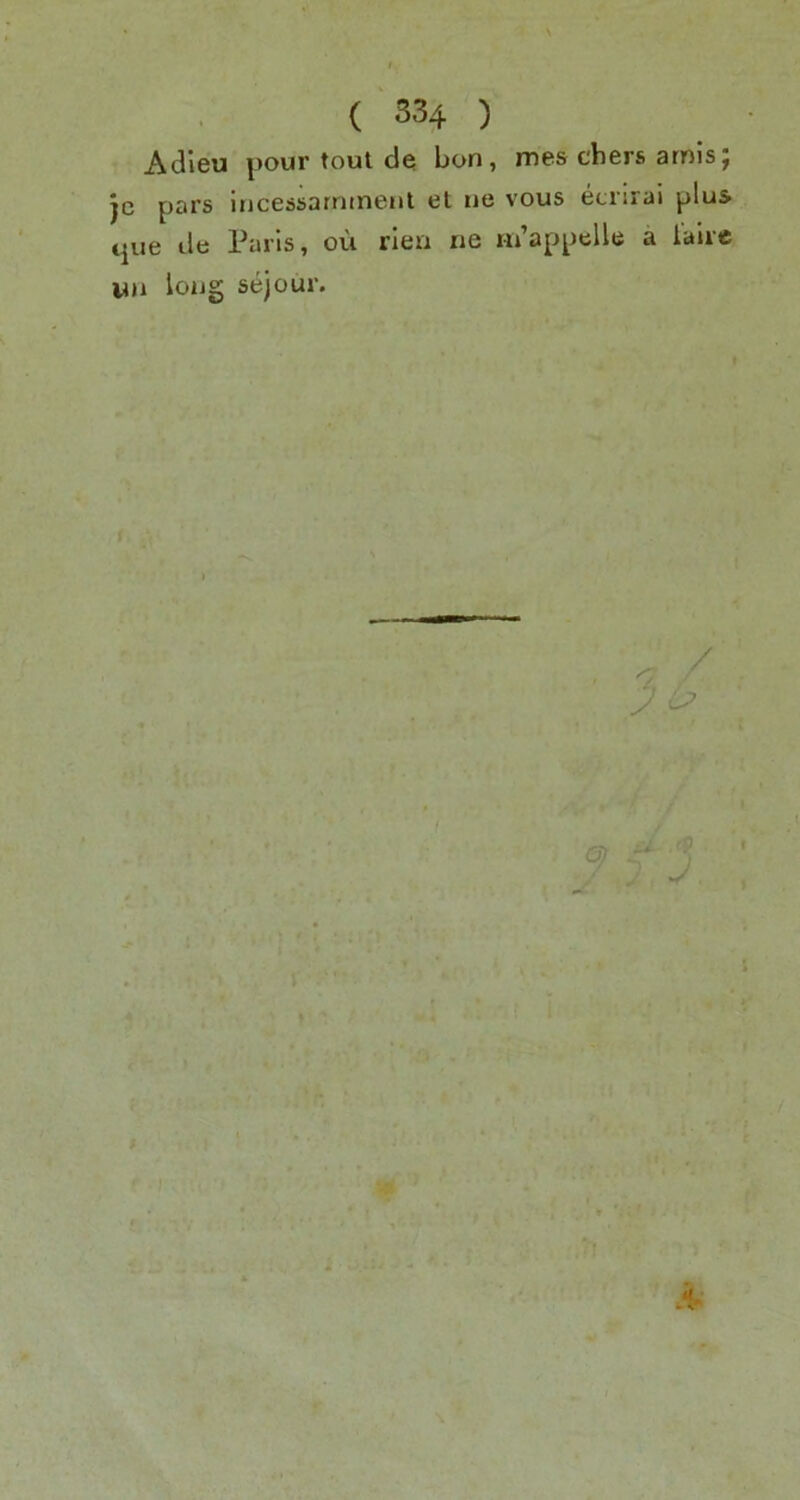 ( 334 )
Adieu pour tout de bon, mes chers amis;
je pars incessamment et ne vous écrirai plus
que de Paris, où rien ne m'appelle à faire
un long séjour.
36